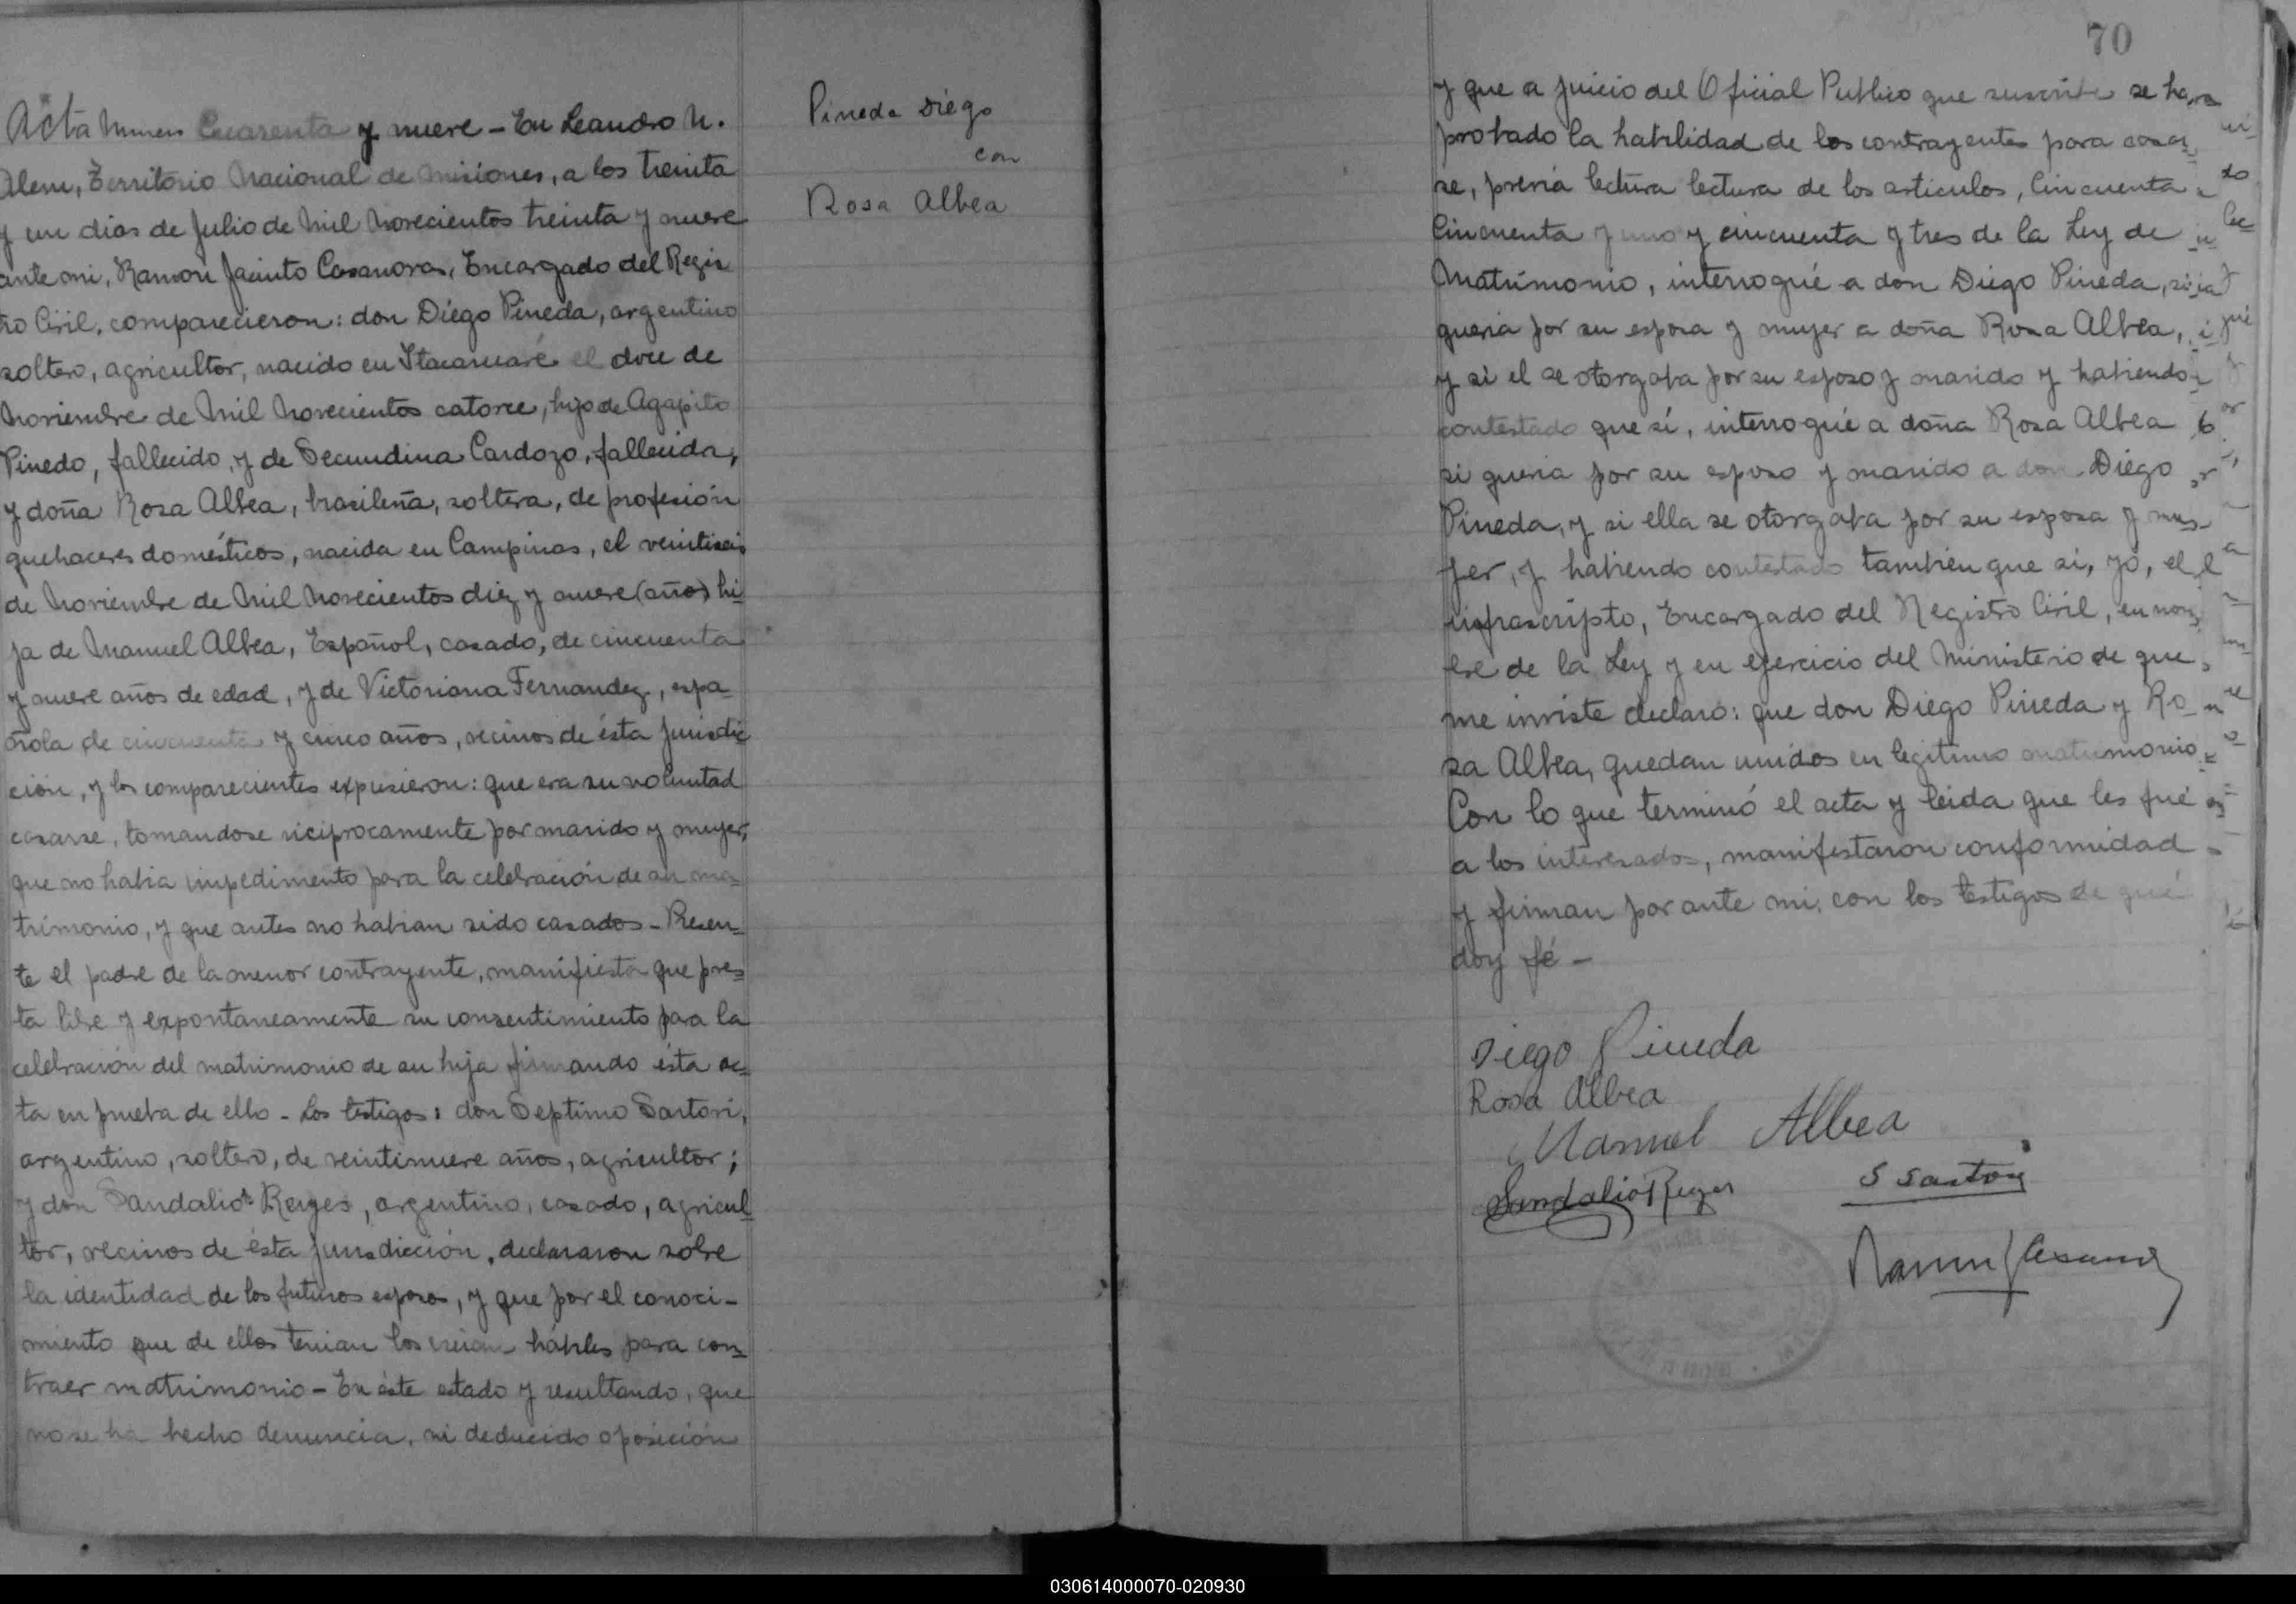 Acta numero Cuarenta y nueve - En Leandro N.
Alem, Territorio Nacional de Misiones, a los treinta
y un dias de Julio de Mil Novecientos treinta y nueve
ante mi, Ramon Jacinto Casanova, Encargado del Regis
tro Civil, comparecieron: don Diego Pineda, argentino
soltero, agricultor, nacido en Itacaruaré el doce de
Noviembre de Mil Novecientos catorce, hijo de Agapito
Pinedo, fallecido, y de Secundina Cardozo, fallecida,
y doña Rosa Albea, brasileña, soltera, de profesión
quehaceres domésticos, nacida en Campinas, el veintiseis
de Noviembre de Mil Novecientos diez y nueve (años) hi-
ja de Manuel Albea, Español, casado, de cincuenta
y nueve años de edad, y de Victoriana Fernandez, espa-
ñola de cincuenta y cinco años, vecinos de ésta jurisdic
ción, y los comparecientes expusieron: que era su voluntad
casarse, tomandose reciprocamente por marido y mujer;
que no habia impedimento para la celebración de su ma-
trimonio, y que antes no habian sido casados - Presen-
te el padre de la menor contrayente, manifiesta que pres-
ta libre y expontaneamente su consentimiento para la
celebración del matrimonio de su hija firmando ésta ac-
ta en prueba de ello - Los testigos: don Septimo Sartori,
argentino, soltero, de veintinueve años, agricultor;
y don Sandalio Reyes, argentino, casado, agricul-
tor, vecinos de ésta jurisdicción, declararon sobre
la identidad de los futuros esposos, y que por el conoci-
miento que de ellos tenian los creian hábiles para con-
traer matrimonio - En éste estado y resultando, que
no se ha hecho denuncia, ni deducido oposición
Pineda Diego
con
Rosa Albea
70
y que a juicio del Oficial Publico que suscribe se ha
probado la habilidad de los contrayentes para casar
se, previa lectura lectura de los articulos, Cincuenta
Cincuenta y uno y cincuenta y tres de la Ley de
Matrimonio, interrogué a don Diego Pineda, si
queria por su esposa y mujer a doña Rosa Albea,
y si el se otorgaba por su esposo y marido y habiendo
contestado que sí, interrogué a doña Rosa Albea
si queria por su esposo y marido a don Diego
Pineda, y si ella se otorgaba por su esposa y mu-
jer, y habiendo contestado también que si, yó, el
infrascripto, Encargado del Registro Civil, en nom
bre de la Ley y en ejercicio del Ministerio de que
me inviste declaro: que don Diego Pineda y Ro-
sa Albea, quedan unidos en legitimo matrimonio
Con lo que terminó el acta y leida que les fué
a los interesados, manifestaron conformidad
y firman por ante mi, con los testigos de qué
doy fé -
Diego Pineda
Rosa Albea
Manuel Albea
Sandalio Reyes
S Sartori
Ramon J Casanova
030614000070-020930